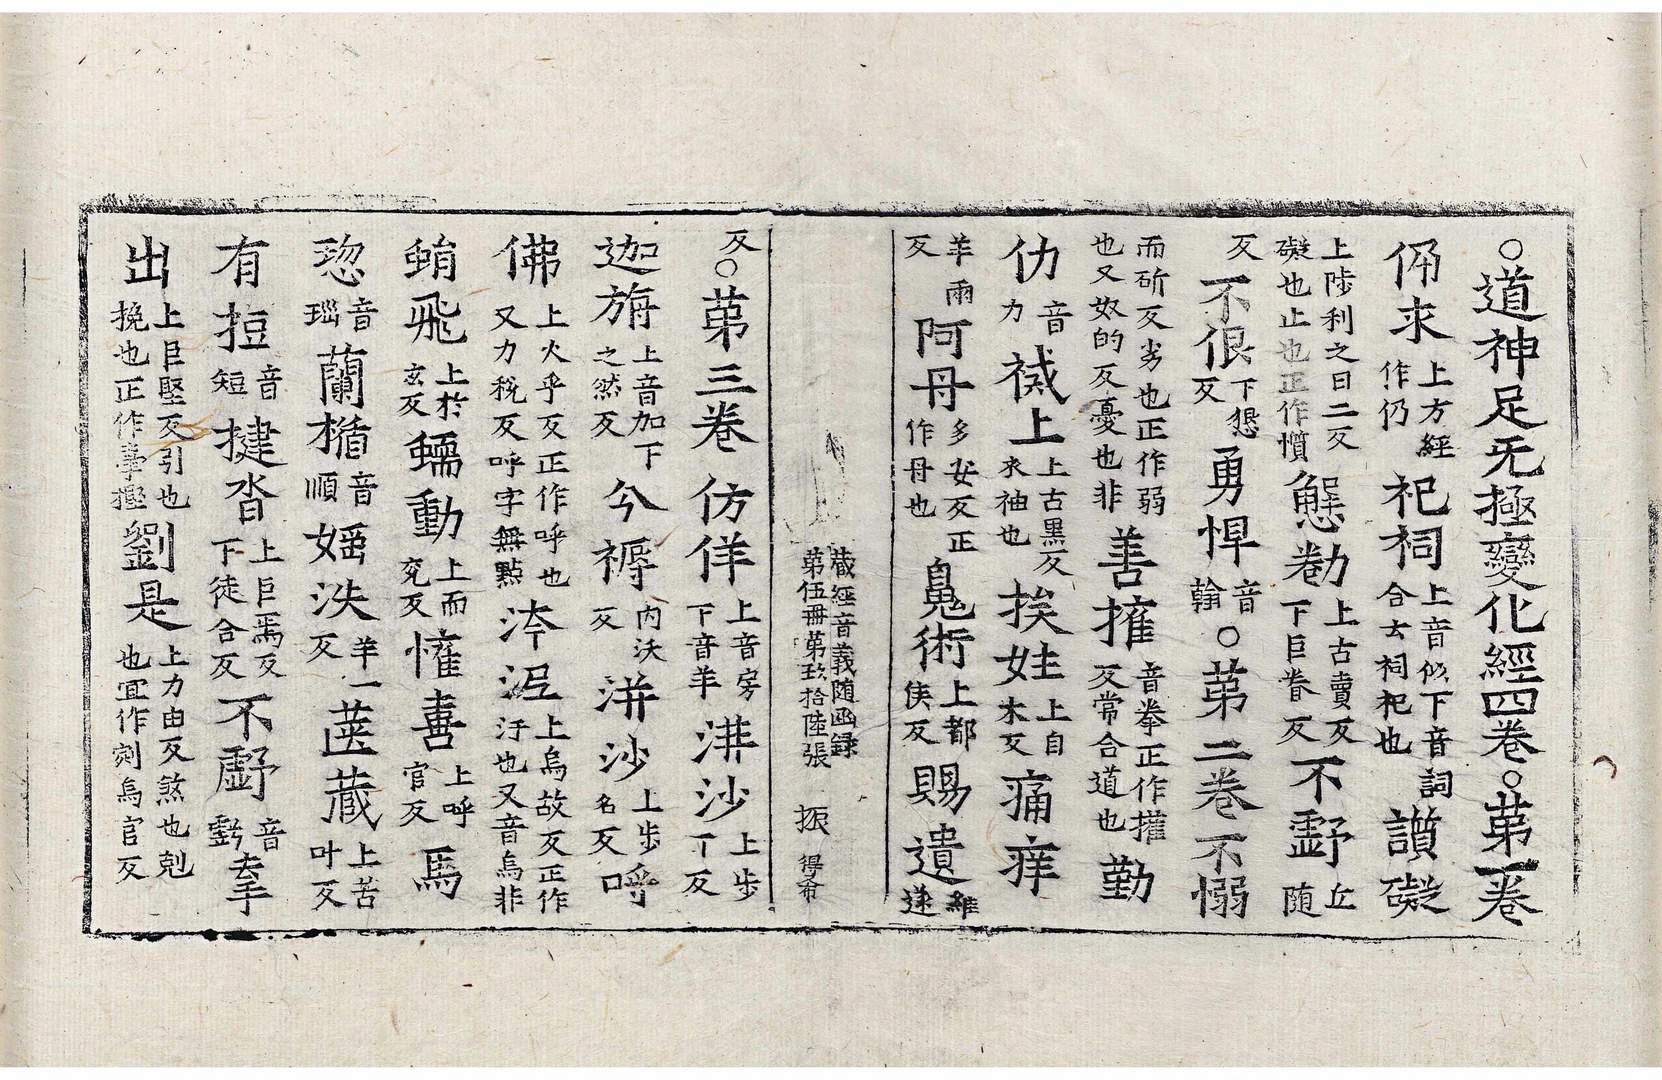 ○道神足无極變化經四卷○第一卷
侢求上方經作仍祀祠上音似下音詞合云祠祀也讃礙
上陟利之日二反礙也止也正作懫懈勌上古賣反下巨眷反不虧丘随
反不佷下懇反勇悍音翰○第二卷不愵
而斫反劣也正作弱也又奴的反憂也非善㩲音拳正作攉反常合道也勤
仂音力裓上上古黒反衣袖也挨㛂上自木反痛痒
羊雨反阿母多安反正作母也鬼術上都侯反賜遺維遂
藏經音義随函録
第伍冊第玖拾陸張 振 得希
反○第三卷仿佯上音房下音羊湃沙上歩下反
迦旃上音加下之然反兮褥内沃反洴沙上歩名反呼
佛上火乎反正作呼也又力税反呼字無點洿𡋯上烏故反正作汙也又音烏非
蜎飛上於玄反蠕動上而兖反懽喜上呼官反馬
㺀音瑙蘭楯音順婬泆羊一反篋藏上苦叶反
有𢭃音短揵沓上巨焉反下徒合反不虧音虧牽
出上巨堅反引也挽也正作搴摼劉是上力由反煞也剋也宜作剜烏官反